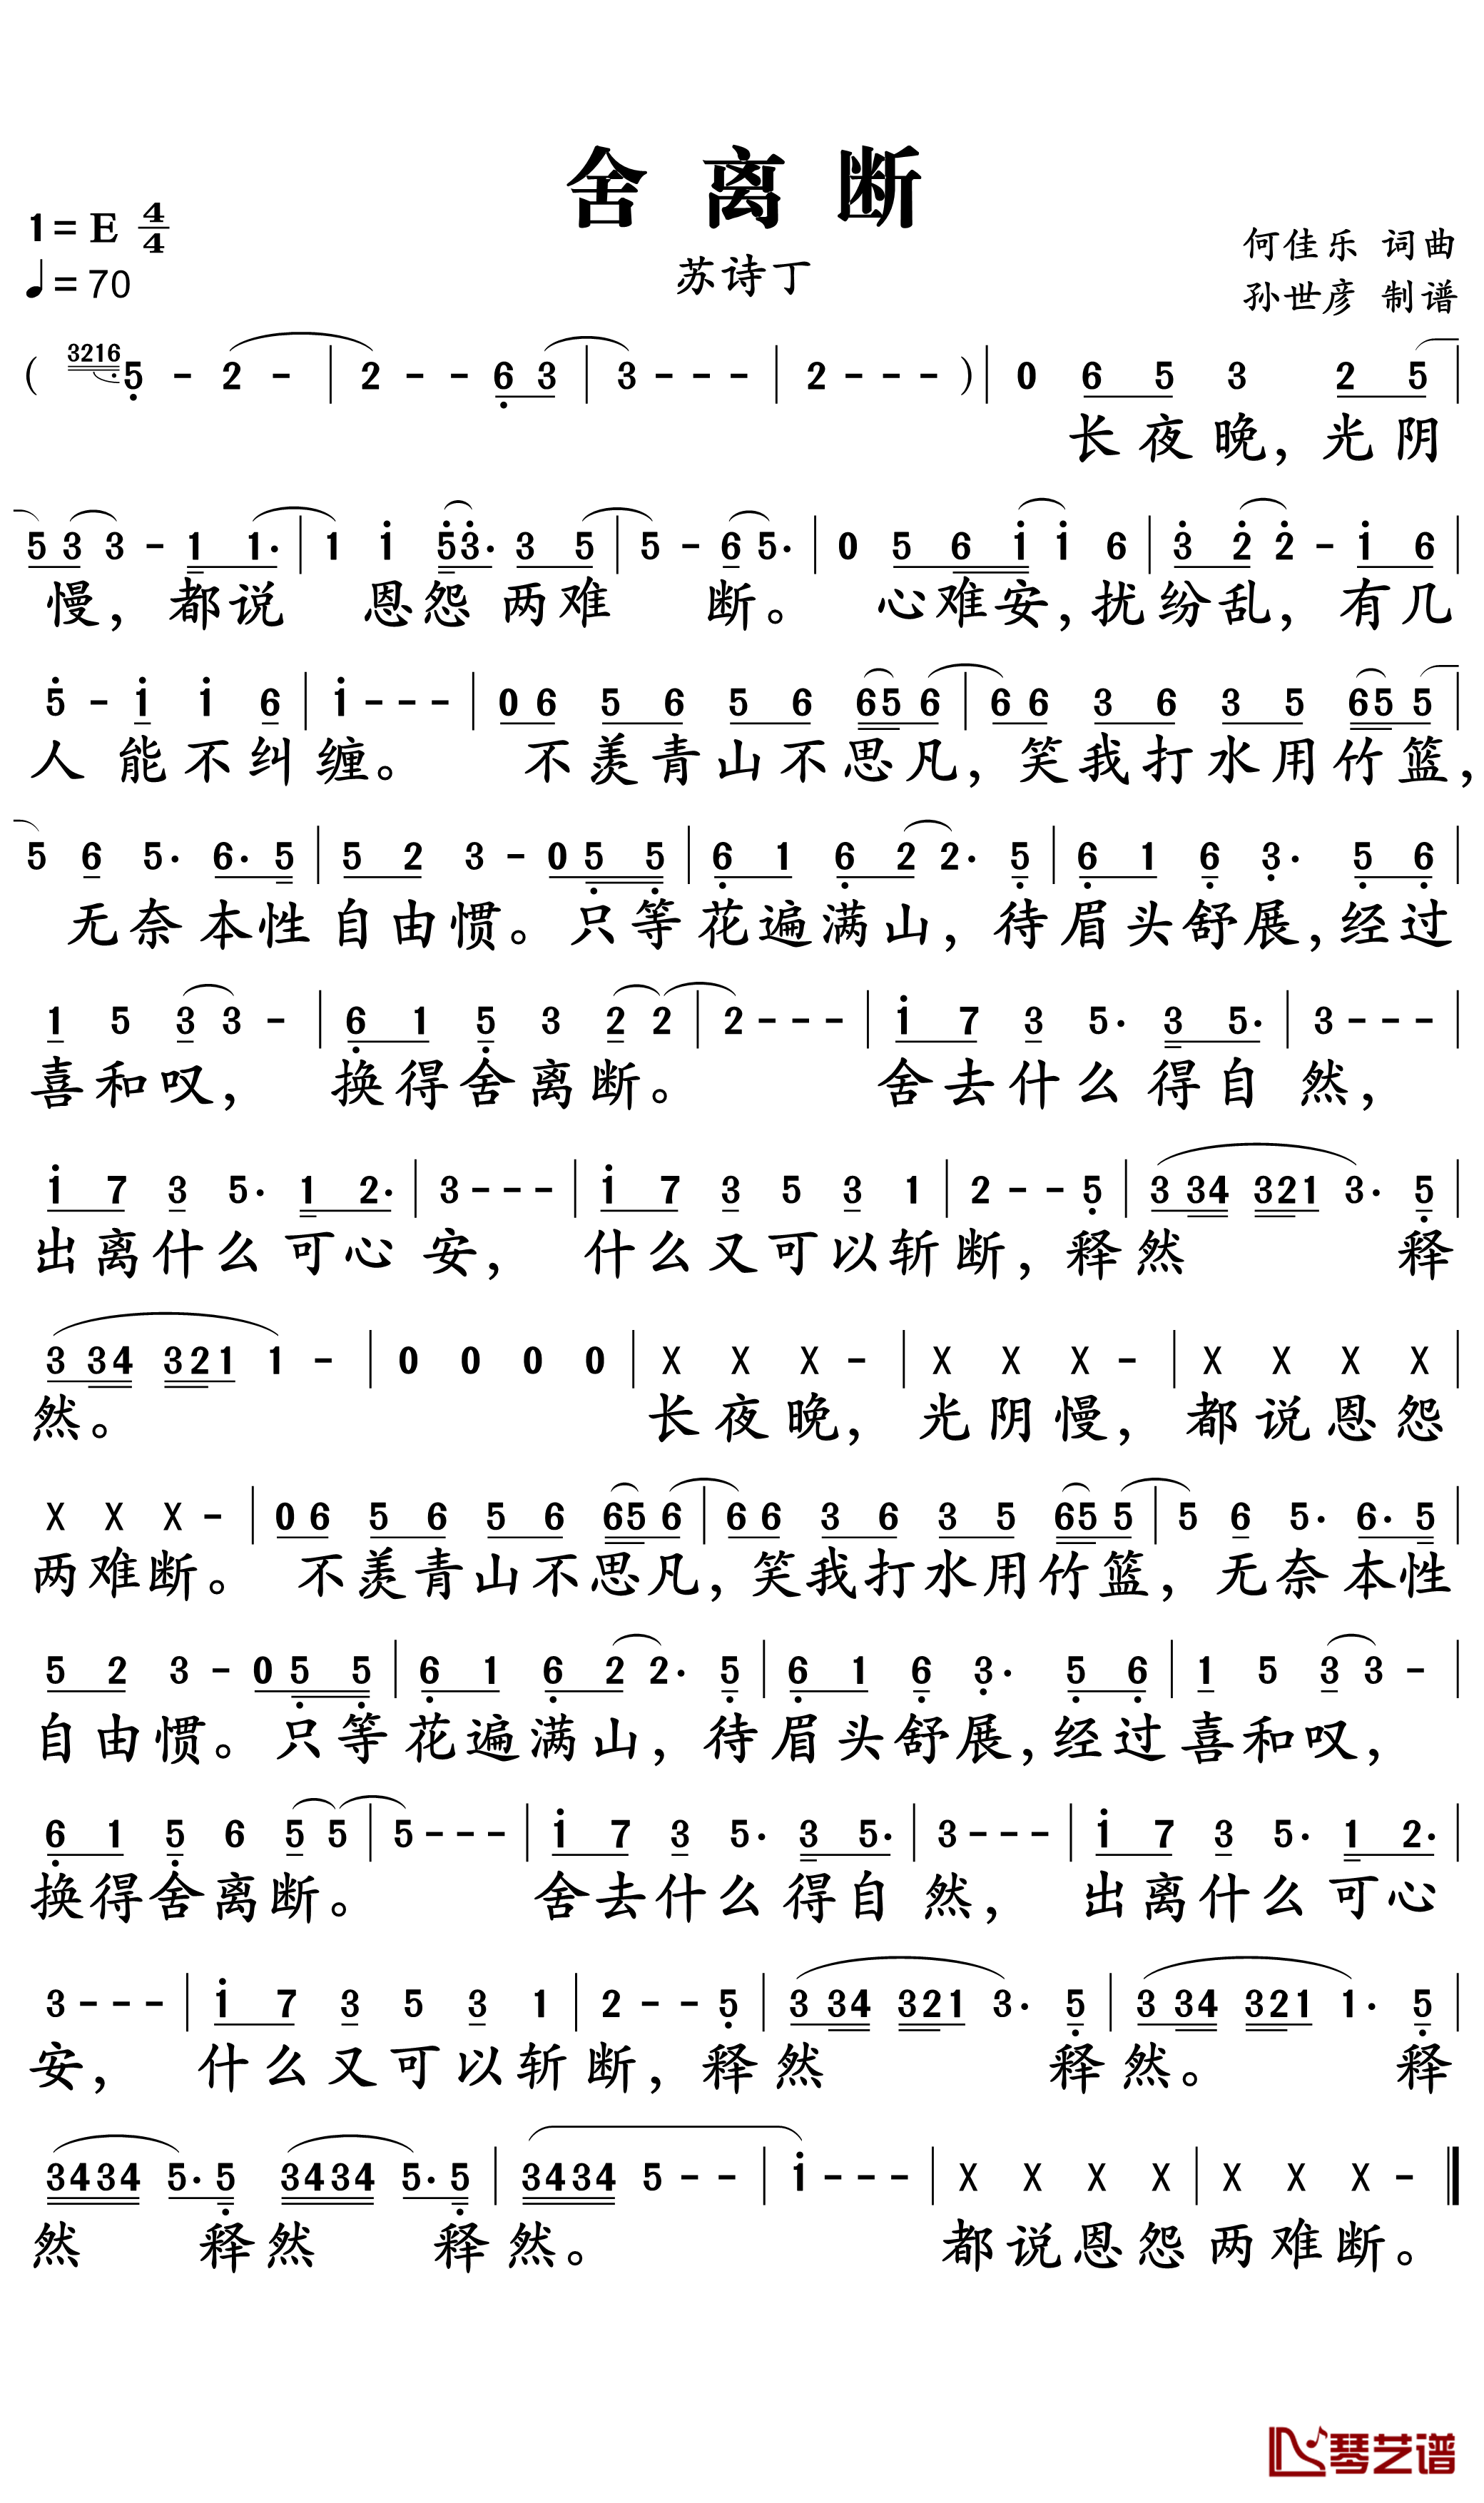 舍离断
1=E 4/4
♩=70
苏诗丁
何佳乐 词曲
孙世彦 制谱
( 3216 5 - 2 - | 2 - - 6 3 | 3 - - - | 2 - - - ) | 0 6 5 3 2 5 |
长夜晚，光阴
5 3 3 - 1 1· | 1 i 5 3· 3 5 | 5 - 6 5· | 0 5 6 i i 6 | 3 2 2 - i 6 |
慢，都说 恩怨两难 断。 心难安，扰纷乱，有几
5 - i i 6 | i - - - | 0 6 5 6 5 6 6 5 6 | 6 6 3 6 3 5 6 5 5 |
人 能不纠缠。 不羡青山不思凡，笑我打水用竹篮，
5 6 5· 6· 5 | 5 2 3 - 0 5 5 | 6 1 6 2 2· 5 | 6 1 6 3· 5 6 |
无奈本性自由惯。只等花遍满山，待眉头舒展，经过
1 5 3 3 - | 6 1 5 3 2 2 | 2 - - - | i 7 3 5· 3 5· | 3 - - - |
喜和叹， 换得舍离断。 舍去什么得自然，
i 7 3 5· 1 2· | 3 - - - | i 7 3 5 3 1 | 2 - - 5 | 3 3 4 3 2 1 3· 5 |
出离什么可心安， 什么又可以斩断，释然 释
3 3 4 3 2 1 1 - | 0 0 0 0 | X X X - | X X X - | X X X X |
然。 长夜晚， 光阴慢， 都说恩怨
X X X - | 0 6 5 6 5 6 6 5 6 | 6 6 3 6 3 5 6 5 5 | 5 6 5· 6· 5
两难断。 不羡青山不思凡，笑我打水用竹篮，无奈本性
5 2 3 - 0 5 5 | 6 1 6 2 2· 5 | 6 1 6 3· 5 6 | 1 5 3 3 - |
自由惯。只等花遍满山，待眉头舒展，经过喜和叹，
6 1 5 6 5 5 | 5 - - - | i 7 3 5· 3 5· | 3 - - - | i 7 3 5· 1 2· |
换得舍离断。 舍去什么得自然， 出离什么可心
3 - - - | i 7 3 5 3 1 | 2 - - 5 | 3 3 4 3 2 1 3· 5 | 3 3 4 3 2 1 1· 5 |
安， 什么又可以斩断，释然 释然。 释
3 4 3 4 5· 5 3 4 3 4 5· 5 | 3 4 3 4 5 - - | i - - - | X X X X | X X X - ||
然 释然 释然。 都说恩怨两难断。
琴艺谱